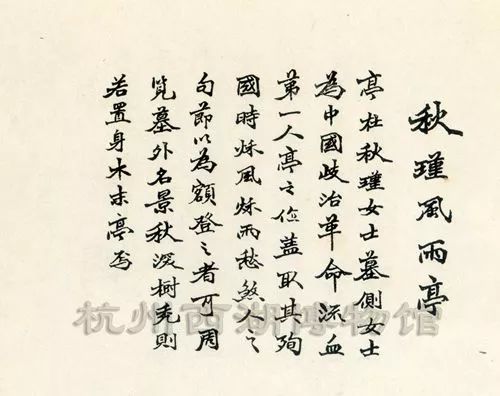 秋瑾風雨亭
亭在秋瑾女士墓側女士
為中國政治革命流血
第一人亭之作蓋取其殉
國時秌風秌雨愁煞人之
句節以為額登之者可周
覽墓外名景秋深樹禿則
若置身木末亭焉
杭州西湖博物馆